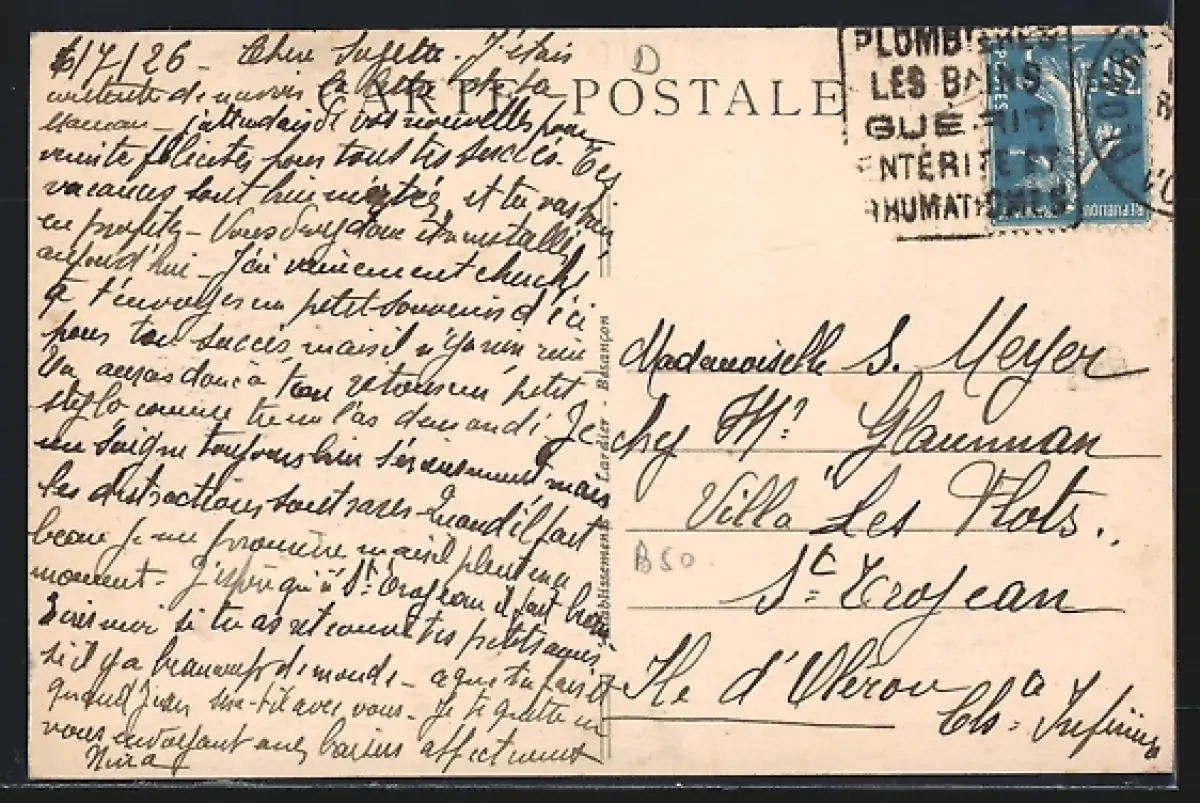 6/7/26 - Chère Suzette. J'étais
contente de la lettre de ta
Maman - j'attendais de vos nouvelles pour
félicites pour tout tes succès. Tes
vacances sont bien mérités et tu vas bien
en profiter - Vous donc
aujourd'hui - J'ai vainement cherché
à t'envoyer un petit souvenir d'ici
pour ton succès mais il n'y a rien
Tu auras donc à ton retour un petit
stylo comme tu me l'as demandé. Je
me soigne toujours bien sérieusement mais
les distractions sont rares. Quand il fait
beau je me promène mais il pleut en ce
moment - J'espère qu'à St. Trojean il fait beau
Ecris moi si tu as retrouvé tes petits amis,
si il y a beaucoup de monde -
quand Jean sera-t-il avec vous - Je te quitte en
vous envoyant mes baisers affectueux
Nina
D
CARTE POSTALE
PLOMBIÈRES
LES BAINS
GUÉRIT
ENTÉRITE ET
RHUMATISMES
POSTES
RÉPUBLIQUE
Établissements C. Lardier - Besançon
Mademoiselle S. Meyer
chez Mr. Glaunman
Villa Les Flots.
B50
St Trojean
Ile d'Oléron
Chte Inférieure